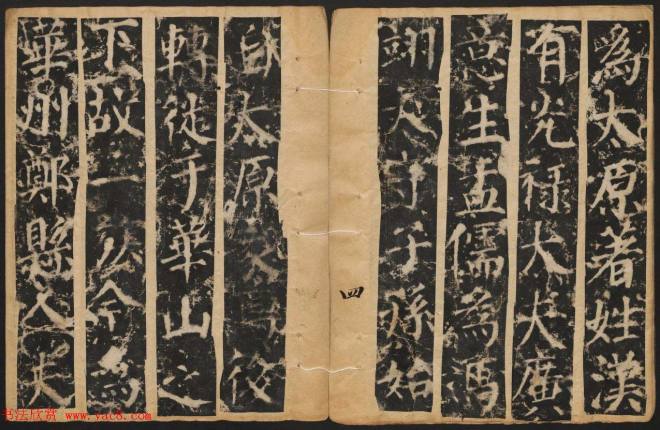 為太原著姓漢
有光禄大夫廣
意生孟儒為馮
翊太守子孫始
四
自太原家焉後
轉徙于華山之
下故一今為
華州鄭縣人夫
书法欣赏 www.yac8.com